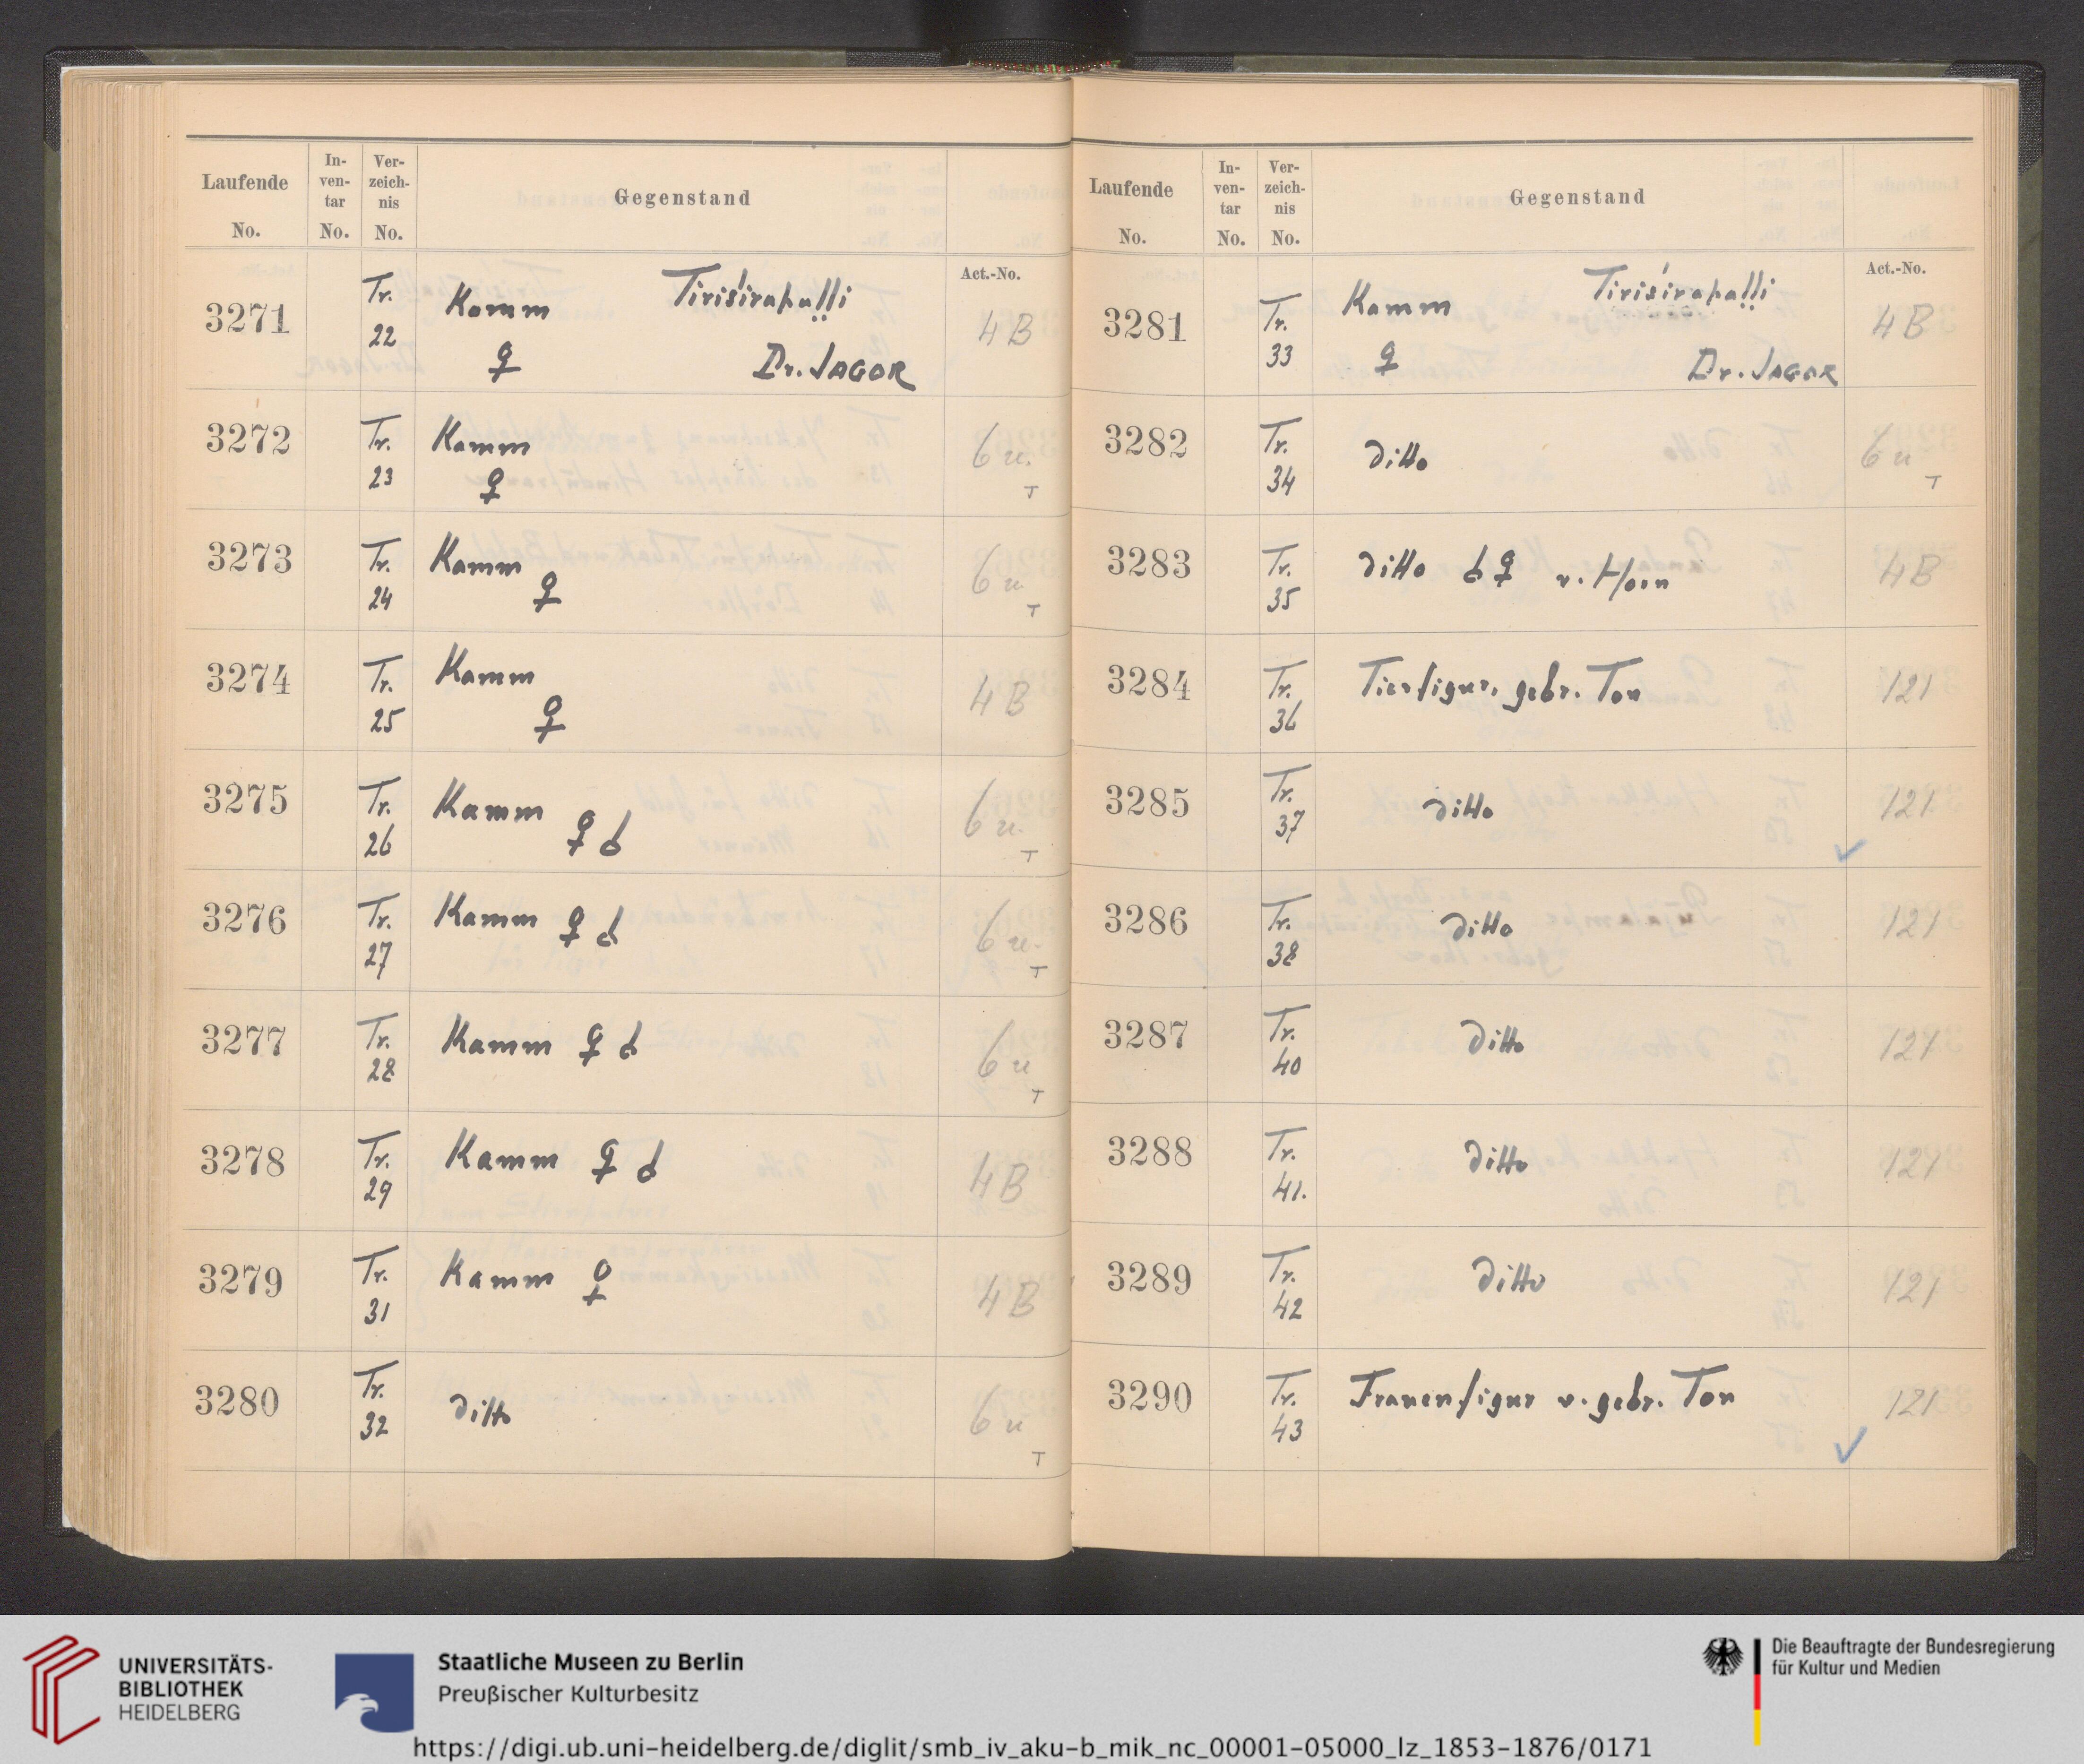 Laufende No. In-ven-tar No. Ver-zeich-nis No. Gegenstand
Act.-No.
3271 Tr. 22 Kamm ♀ Tiriśirapaḷḷi Dr. JAGOR 4 B
3272 Tr. 23 Kamm ♀ 6 u. T
3273 Tr. 24 Kamm ♀ 6 u T
3274 Tr. 25 Kamm ♀ 4 B
3275 Tr. 26 Kamm ♀ ♂ 6 u. T
3276 Tr. 27 Kamm ♀ ♂ 6 u. T
3277 Tr. 28 Kamm ♀ ♂ 6 u T
3278 Tr. 29 Kamm ♀ ♂ 4 B
3279 Tr. 31 Kamm ♀ 4 B
3280 Tr. 32 ditto 6 u T
Laufende No. In-ven-tar No. Ver-zeich-nis No. Gegenstand
Act.-No.
3281 Tr. 33 Kamm ♀ Tiriśirapaḷḷi Dr. JAGOR 4 B
3282 Tr. 34 ditto 6 u T
3283 Tr. 35 ditto ♂ ♀ v. Horn 4 B
3284 Tr. 36 Tierfigur, gebr. Ton 121
3285 Tr. 37 ditto 121
3286 Tr. 38 ditto 121
3287 Tr. 40 ditto 121
3288 Tr. 41. ditto 121
3289 Tr. 42 ditto 121
3290 Tr. 43 Frauenfigur v. gebr. Ton 121
UNIVERSITÄTS-
BIBLIOTHEK
HEIDELBERG
Staatliche Museen zu Berlin
Preußischer Kulturbesitz
Die Beauftragte der Bundesregierung
für Kultur und Medien
https://digi.ub.uni-heidelberg.de/diglit/smb_iv_aku-b_mik_nc_00001-05000_lz_1853-1876/0171